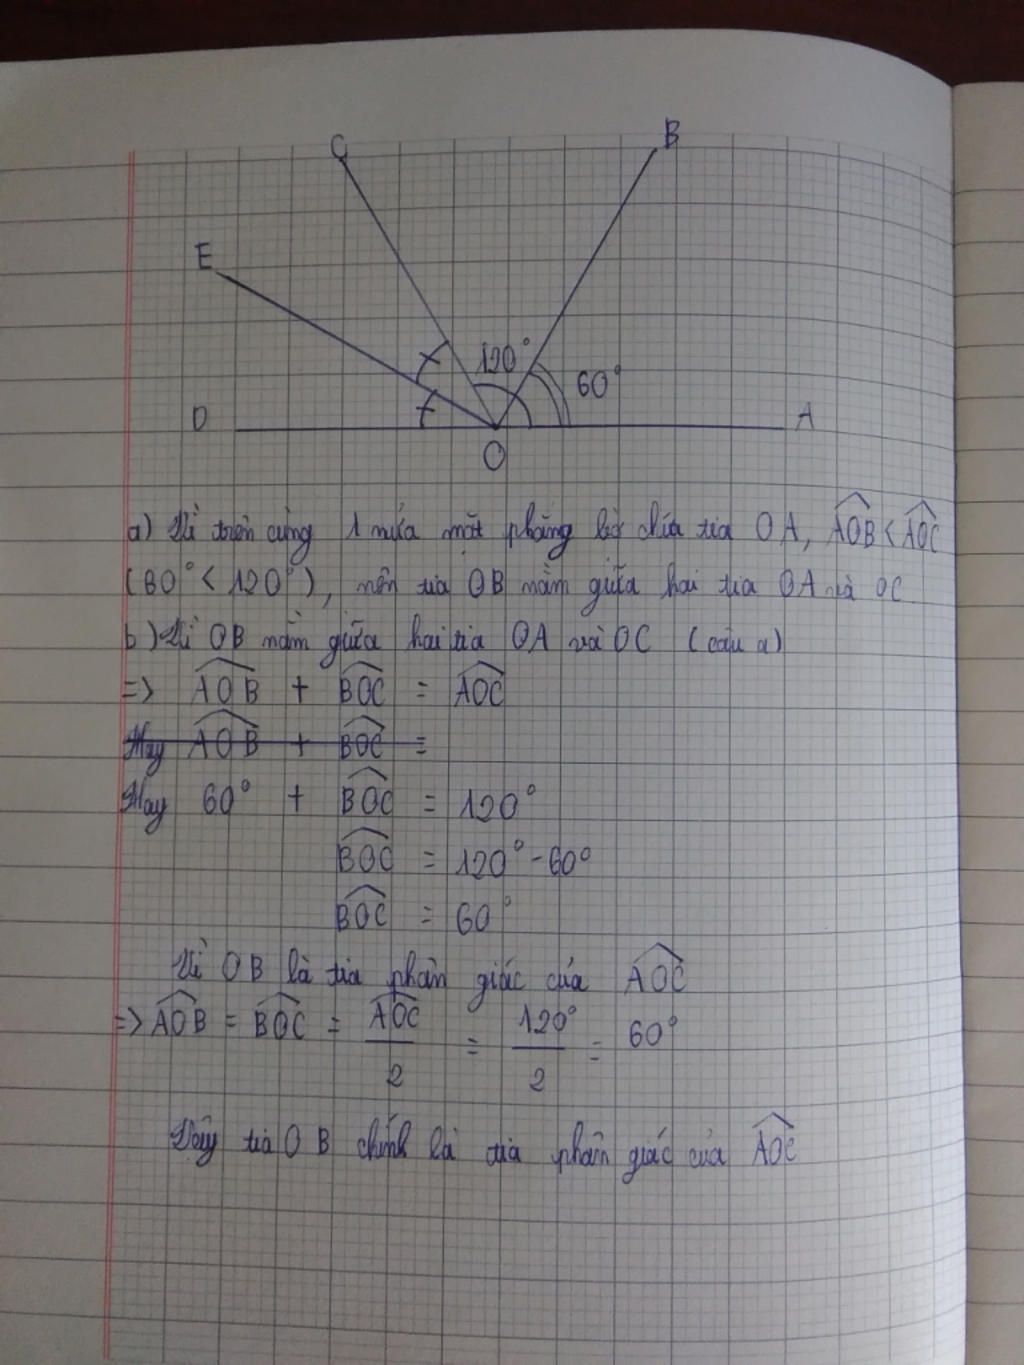 C
B
E
120°
60°
D
A
O
a) Vì trên cùng 1 nửa mặt phẳng bờ chứa tia OA, AOB < AOC
(60° < 120°), nên tia OB nằm giữa hai tia OA và OC
b) Vì OB nằm giữa hai tia OA và OC (câu a)
=> AOB + BOC = AOC
Hay AOB + BOC =
Hay 60° + BOC = 120°
BOC = 120° - 60°
BOC = 60°
Vì OB là tia phân giác của AOC
=> AOB = BOC = AOC/2 = 120°/2 = 60°
Vậy tia OB chính là tia phân giác của AOC